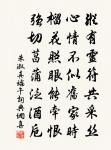 纵有灵符共采丝
心情不似旧家时
榴花照眼能牵恨
强切菖蒲泛酒卮
朱淑真端午词典网喜